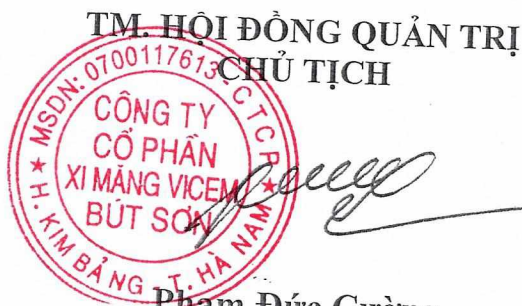 TM. HỘI ĐỒNG QUẢN TRỊ
CHỦ TỊCH
MSDN: 0700117613-C.T.C.P
CÔNG TY
CỔ PHẦN
XI MĂNG VICEM
BÚT SƠN
★ H. KIM BẢNG - T. HÀ NAM ★
Phạm Đức Cường